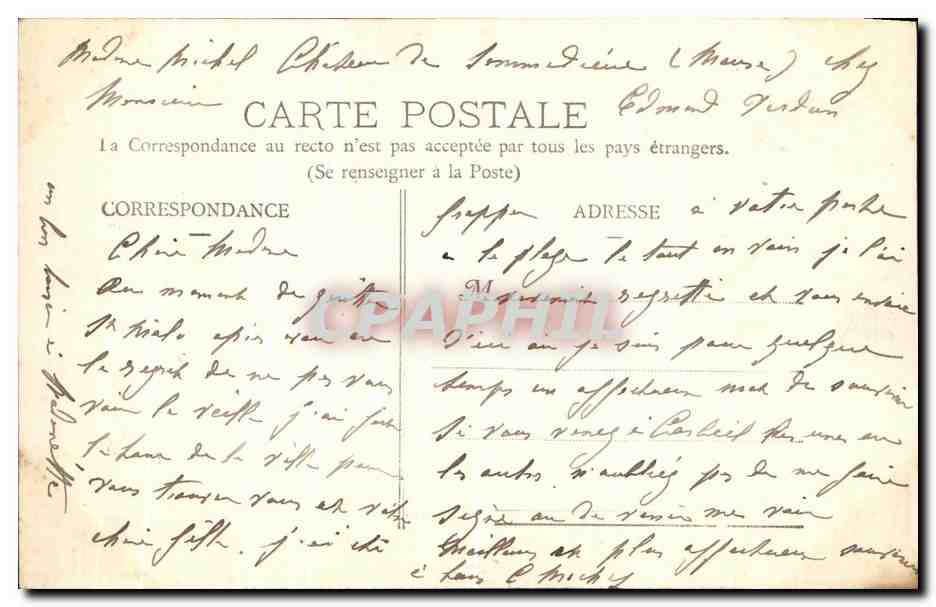 Madame Michel Château de Sommedieue (Meuse) chez
Monsieur Edmond Verdun
CARTE POSTALE
La Correspondance au recto n'est pas acceptée par tous les pays étrangers.
(Se renseigner à la Poste)
CORRESPONDANCE
Chère Madame
Au moment de quitter
St Malo après avoir eu
le regret de ne pas vous
voir la veille j'ai fait
le tour de la ville pour
vous trouver vous et votre
chère fille. j'ai été
frapper ADRESSE à votre porte
à la plage le tout en vain je l'ai
M
vivement regretté et vous envoie
d'ici où je suis pour quelque
temps un affectueux mot de souvenir
Si vous venez à Corbeil les unes ou
les autres n'oubliez pas de me faire
signe ou de venir me voir
Meilleurs et plus affectueux souvenirs
à tous
un bon baiser à
CPAPHIL